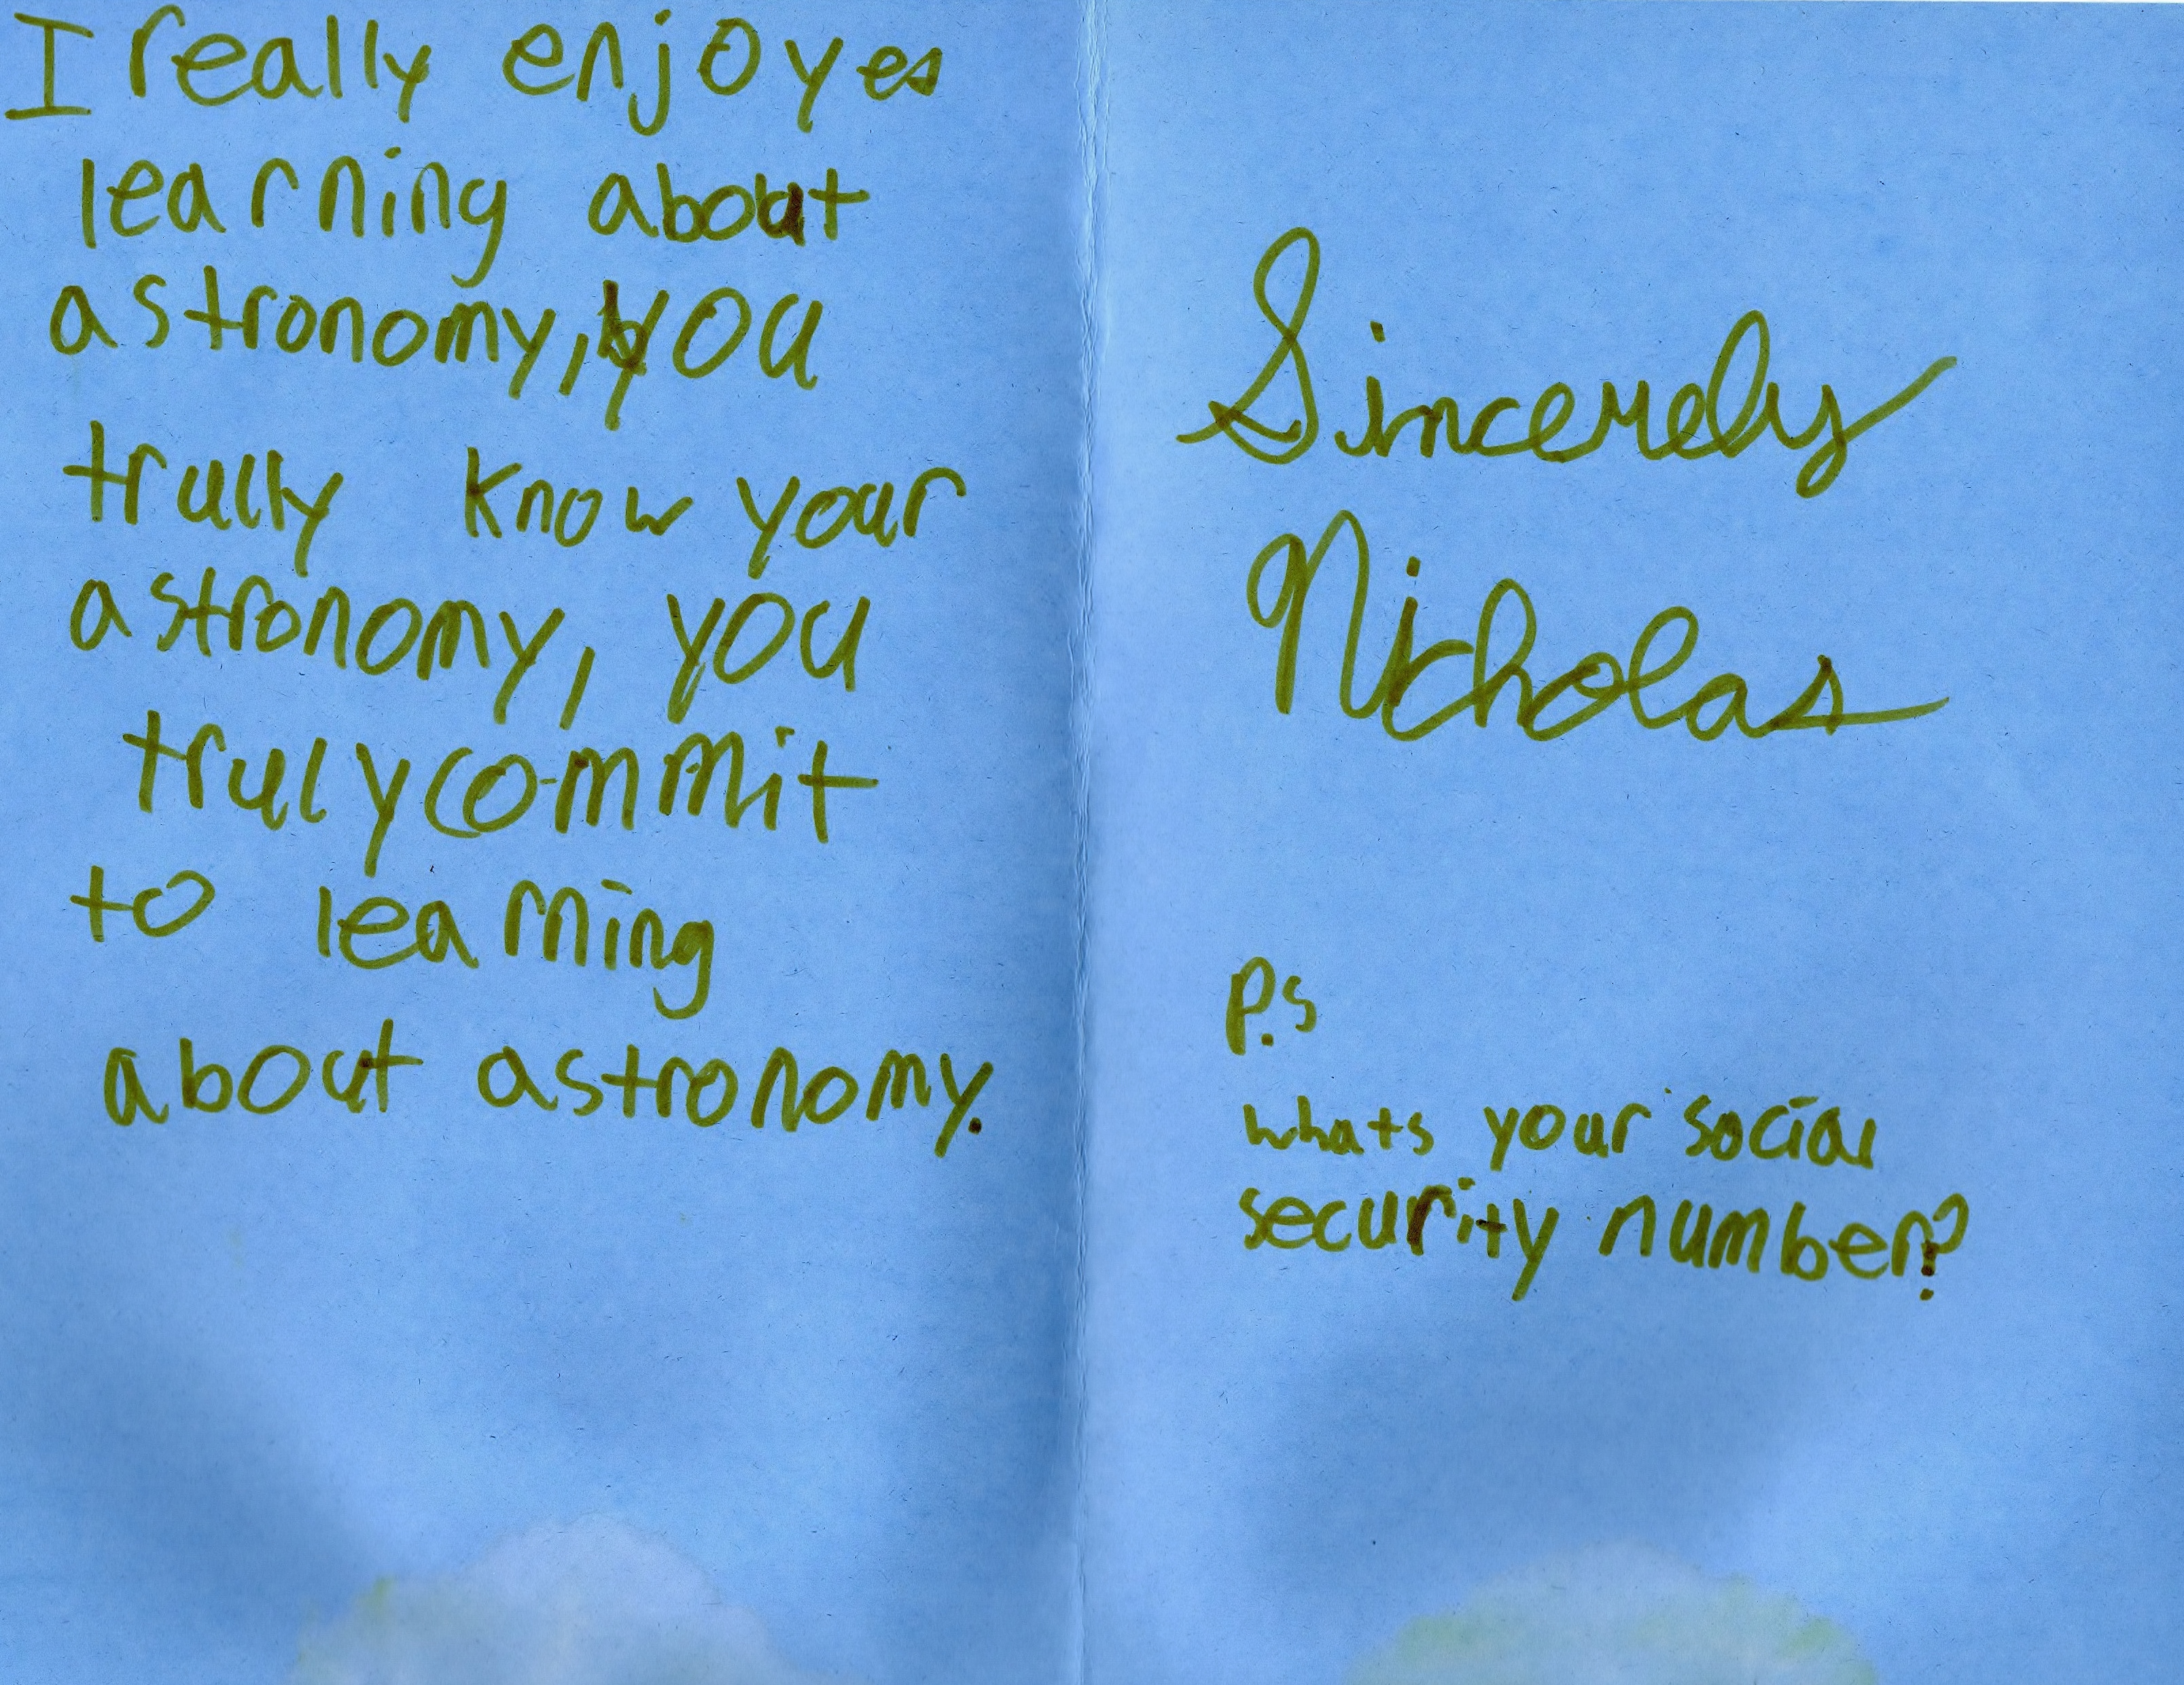 I really enjoyes
learning about
astronomy, you
trully know your
astronomy, you
truly commit
to learning
about astronomy.
Sincerely
Nicholas
P.s
whats your social
security number?